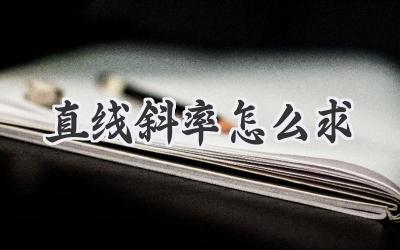 直线斜率怎么求